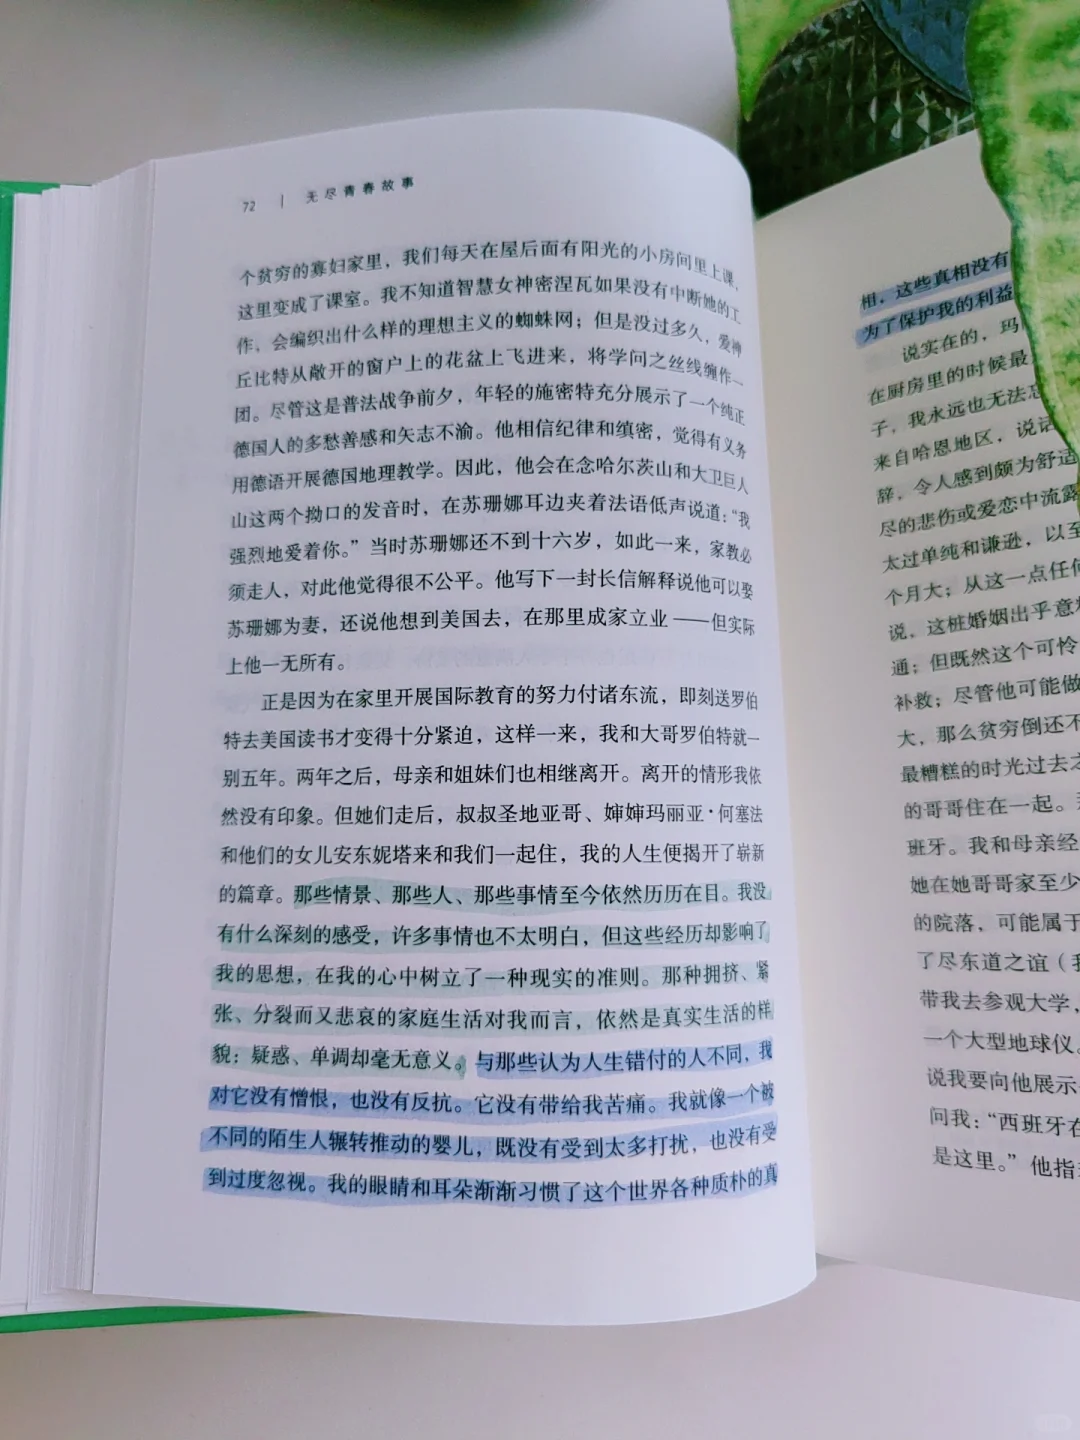 72 | 无尽青春故事
个贫穷的寡妇家里，我们每天在屋后面有阳光的小房间里上课，
这里变成了课室。我不知道智慧女神密涅瓦如果没有中断她的工
作，会编织出什么样的理想主义的蜘蛛网；但是没过多久，爱神
丘比特从敞开的窗户上的花盆上飞进来，将学问之丝线缠作一
团。尽管这是普法战争前夕，年轻的施密特充分展示了一个纯正
德国人的多愁善感和矢志不渝。他相信纪律和缜密，觉得有义务
用德语开展德国地理教学。因此，他会在念哈尔茨山和大卫巨人
山这两个拗口的发音时，在苏珊娜耳边夹着法语低声说道：“我
强烈地爱着你。”当时苏珊娜还不到十六岁，如此一来，家教必
须走人，对此他觉得很不公平。他写下一封长信解释说他可以娶
苏珊娜为妻，还说他想到美国去，在那里成家立业——但实际
上他一无所有。
正是因为在家里开展国际教育的努力付诸东流，即刻送罗伯
特去美国读书才变得十分紧迫，这样一来，我和大哥罗伯特就一
别五年。两年之后，母亲和姐妹们也相继离开。离开的情形我依
然没有印象。但她们走后，叔叔圣地亚哥、婶婶玛丽亚·何塞法
和他们的女儿安东妮塔来和我们一起住，我的人生便揭开了崭新
的篇章。那些情景、那些人、那些事情至今依然历历在目。我没
有什么深刻的感受，许多事情也不太明白，但这些经历却影响了
我的思想，在我的心中树立了一种现实的准则。那种拥挤、紧
张、分裂而又悲哀的家庭生活对我而言，依然是真实生活的样
貌：疑惑、单调却毫无意义。与那些认为人生错付的人不同，我
对它没有憎恨，也没有反抗。它没有带给我苦痛。我就像一个被
不同的陌生人辗转推动的婴儿，既没有受到太多打扰，也没有受
到过度忽视。我的眼睛和耳朵渐渐习惯了这个世界各种质朴的真
相，这些真相没有
为了保护我的利益
说实在的，玛
在厨房里的时候最
子，我永远也无法忘
来自哈恩地区，说话
辞，令人感到颇为舒适
尽的悲伤或爱恋中流露
太过单纯和谦逊，以至
个月大；从这一点任何
说，这桩婚姻出乎意料
通；但既然这个可怜
补救；尽管他可能做
大，那么贫穷倒还不
最糟糕的时光过去之
的哥哥住在一起。
班牙。我和母亲经
她在她哥哥家至少
的院落，可能属于
了尽东道之谊（我
带我去参观大学，
一个大型地球仪。
说我要向他展示
问我：“西班牙在
是这里。”他指